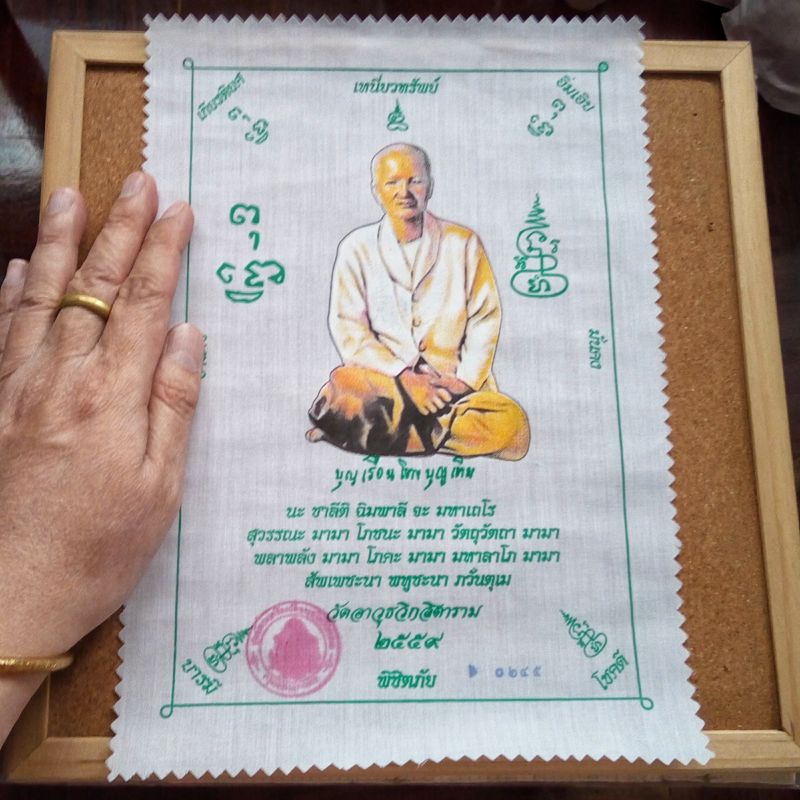 เหนี่ยวทรัพย์
อิ่มเอิบ
มั่นคง
บุญเรือน โตงบุญเติม
นะ ชาลีติ ฉิมพาลี จะ มหาเถโร
สุวรรณะ มามา โภชนะ มามา วัตถุวัตถา มามา
พลาพลัง มามา โภคะ มามา มหาลาโภ มามา
สัพเพชะนา พหูชะนา ภวันตุเม
วัดอาวุธวิกสิตาราม
๒๕๕๙
บารมี
พิชิตภัย
๐๒๔๕
โชคดี